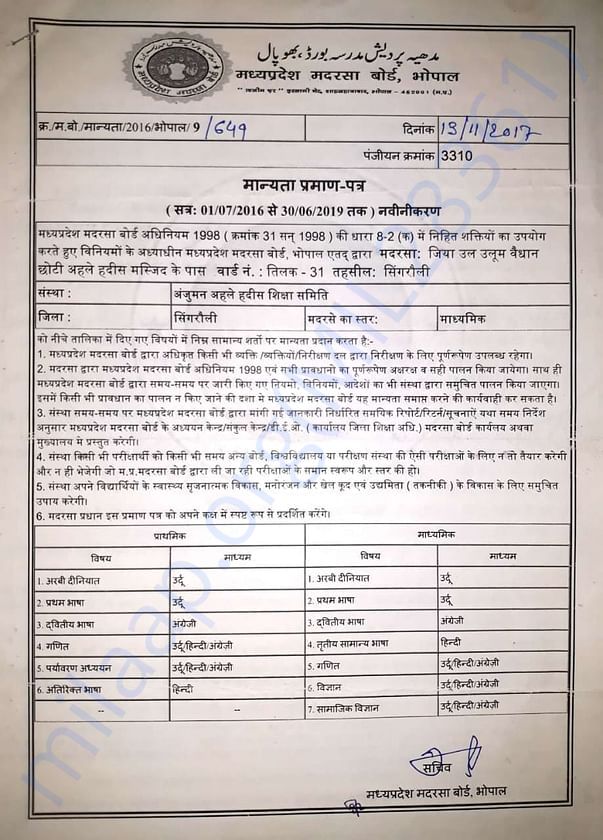 مدھیہ پردیش مدرسہ بورڈ، بھوپال
मध्यप्रदेश मदरसा बोर्ड, भोपाल
क्र./म.बो./मान्यता/2016/भोपाल/ 9 /649
दिनांक 13/11/2017
पंजीयन क्रमांक 3310
मान्यता प्रमाण-पत्र
( सत्र: 01/07/2016 से 30/06/2019 तक ) नवीनीकरण
मध्यप्रदेश मदरसा बोर्ड अधिनियम 1998 ( क्रमांक 31 सन् 1998 ) की धारा 8-2 (क) में निहित शक्तियों का उपयोग
करते हुए विनियमों के अध्याधीन मध्यप्रदेश मदरसा बोर्ड, भोपाल एतद् द्वारा मदरसा: जिया उल उलूम वैधान
छोटी अहले हदीस मस्जिद के पास वार्ड नं. : तिलक - 31 तहसील: सिंगरौली
संस्था : अंजुमन अहले हदीस शिक्षा समिति
जिला : सिंगरौली मदरसे का स्तर: माध्यमिक
को नीचे तालिका में दिए गए विषयों में निम्न सामान्य शर्तो पर मान्यता प्रदान करता है:-
1. मध्यप्रदेश मदरसा बोर्ड द्वारा अधिकृत किसी भी व्यक्ति /व्यक्तियों/निरीक्षण दल द्वारा निरीक्षण के लिए पूर्णरूपेण उपलब्ध रहेगा।
2. मदरसा द्वारा मध्यप्रदेश मदरसा बोर्ड अधिनियम 1998 एवं सभी प्रावधानों का पूर्णरूपेण अक्षरश व सही पालन किया जायेगा। साथ ही
मध्यप्रदेश मदरसा बोर्ड द्वारा समय-समय पर जारी किए गए नियमों, विनियमों, आदेशों का भी संस्था द्वारा समुचित पालन किया जाएगा।
इसमें किसी भी प्रावधान का पालन न किए जाने की दशा मे मध्यप्रदेश मदरसा बोर्ड यह मान्यता समाप्त करने की कार्यवाही कर सकता है।
3. संस्था समय-समय पर मध्यप्रदेश मदरसा बोर्ड द्वारा मांगी गई जानकारी निर्धारित समयिक रिपोर्ट/रिटर्न/सूचनाऐं यथा समय निर्देश
अनुसार मध्यप्रदेश मदरसा बोर्ड के अध्ययन केन्द्र/संकुल केन्द्र/डी.ई.ओ. ( कार्यालय जिला शिक्षा अधि.) मदरसा बोर्ड कार्यालय अथवा
मुख्यालय मे प्रस्तुत करेगी।
4. संस्था किसी भी परीक्षार्थी को किसी भी समय अन्य बोर्ड, विश्वविद्यालय या परीक्षण संस्था की ऐसी परीक्षाओं के लिए न तो तैयार करेगी
और न ही भेजेगी जो म.प्र.मदरसा बोर्ड द्वारा ली जा रही परीक्षाओं के समान स्वरूप और स्तर की हो।
5. संस्था अपने विद्यार्थियों के स्वास्थ्य सृजनात्मक विकास, मनोरंजन और खेल कूद एवं उद्यमिता ( तकनीकी ) के विकास के लिए समुचित
उपाय करेगी।
6. मदरसा प्रधान इस प्रमाण पत्र को अपने कक्ष में स्पष्ट रूप से प्रदर्शित करेंगे।
प्राथमिक माध्यमिक
विषय माध्यम विषय माध्यम
1. अरबी दीनियात उर्दू 1. अरबी दीनियात उर्दू
2. प्रथम भाषा उर्दू 2. प्रथम भाषा उर्दू
3. दवितीय भाषा अंग्रेजी 3. दवितीय भाषा अंग्रेजी
4. गणित उर्दू/हिन्दी/अंग्रेज़ी 4. तृतीय सामान्य भाषा हिन्दी
5. पर्यावरण अध्ययन उर्दू/हिन्दी/अंग्रेज़ी 5. गणित उर्दू/हिन्दी/अंग्रेज़ी
6. अतिरिक्त भाषा हिन्दी 6. विज्ञान उर्दू/हिन्दी/अंग्रेज़ी
-- -- 7. सामाजिक विज्ञान उर्दू/हिन्दी/अंग्रेज़ी
सचिव
मध्यप्रदेश मदरसा बोर्ड, भोपाल